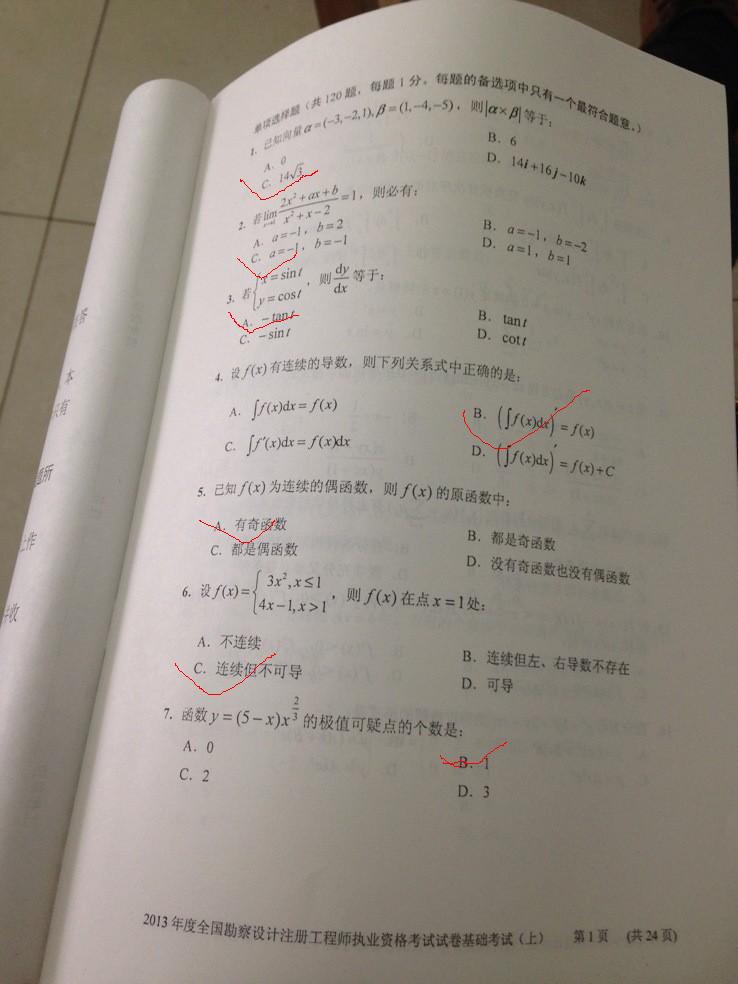 单项选择题（共 120 题，每题 1 分。每题的备选项中只有一个最符合题意。）
1. 已知向量 α=(-3,-2,1), β=(1,-4,-5)，则|α×β|等于:
A. 0
B. 6
C. 14√3
D. 14i+16j-10k
2. 若lim(x→1) (2x²+ax+b)/(x²+x-2)=1，则必有:
A. a=-1，b=2
B. a=-1，b=-2
C. a=-1，b=-1
D. a=1，b=1
3. 若{x=sint, y=cost，则dy/dx等于:
A. -tant
B. tant
C. -sint
D. cott
4. 设f(x)有连续的导数，则下列关系式中正确的是:
A. ∫f(x)dx=f(x)
B. (∫f(x)dx)′=f(x)
C. ∫f′(x)dx=f(x)dx
D. (∫f(x)dx)′=f(x)+C
5. 已知f(x)为连续的偶函数，则f(x)的原函数中:
A. 有奇函数
B. 都是奇函数
C. 都是偶函数
D. 没有奇函数也没有偶函数
6. 设f(x)={3x², x≤1; 4x-1, x>1，则f(x)在点x=1处:
A. 不连续
B. 连续但左、右导数不存在
C. 连续但不可导
D. 可导
7. 函数y=(5-x)x^(2/3)的极值可疑点的个数是:
A. 0
B. 1
C. 2
D. 3
2013 年度全国勘察设计注册工程师执业资格考试试卷基础考试（上） 第 1 页 （共 24 页）
答
本
只有
所
作
收